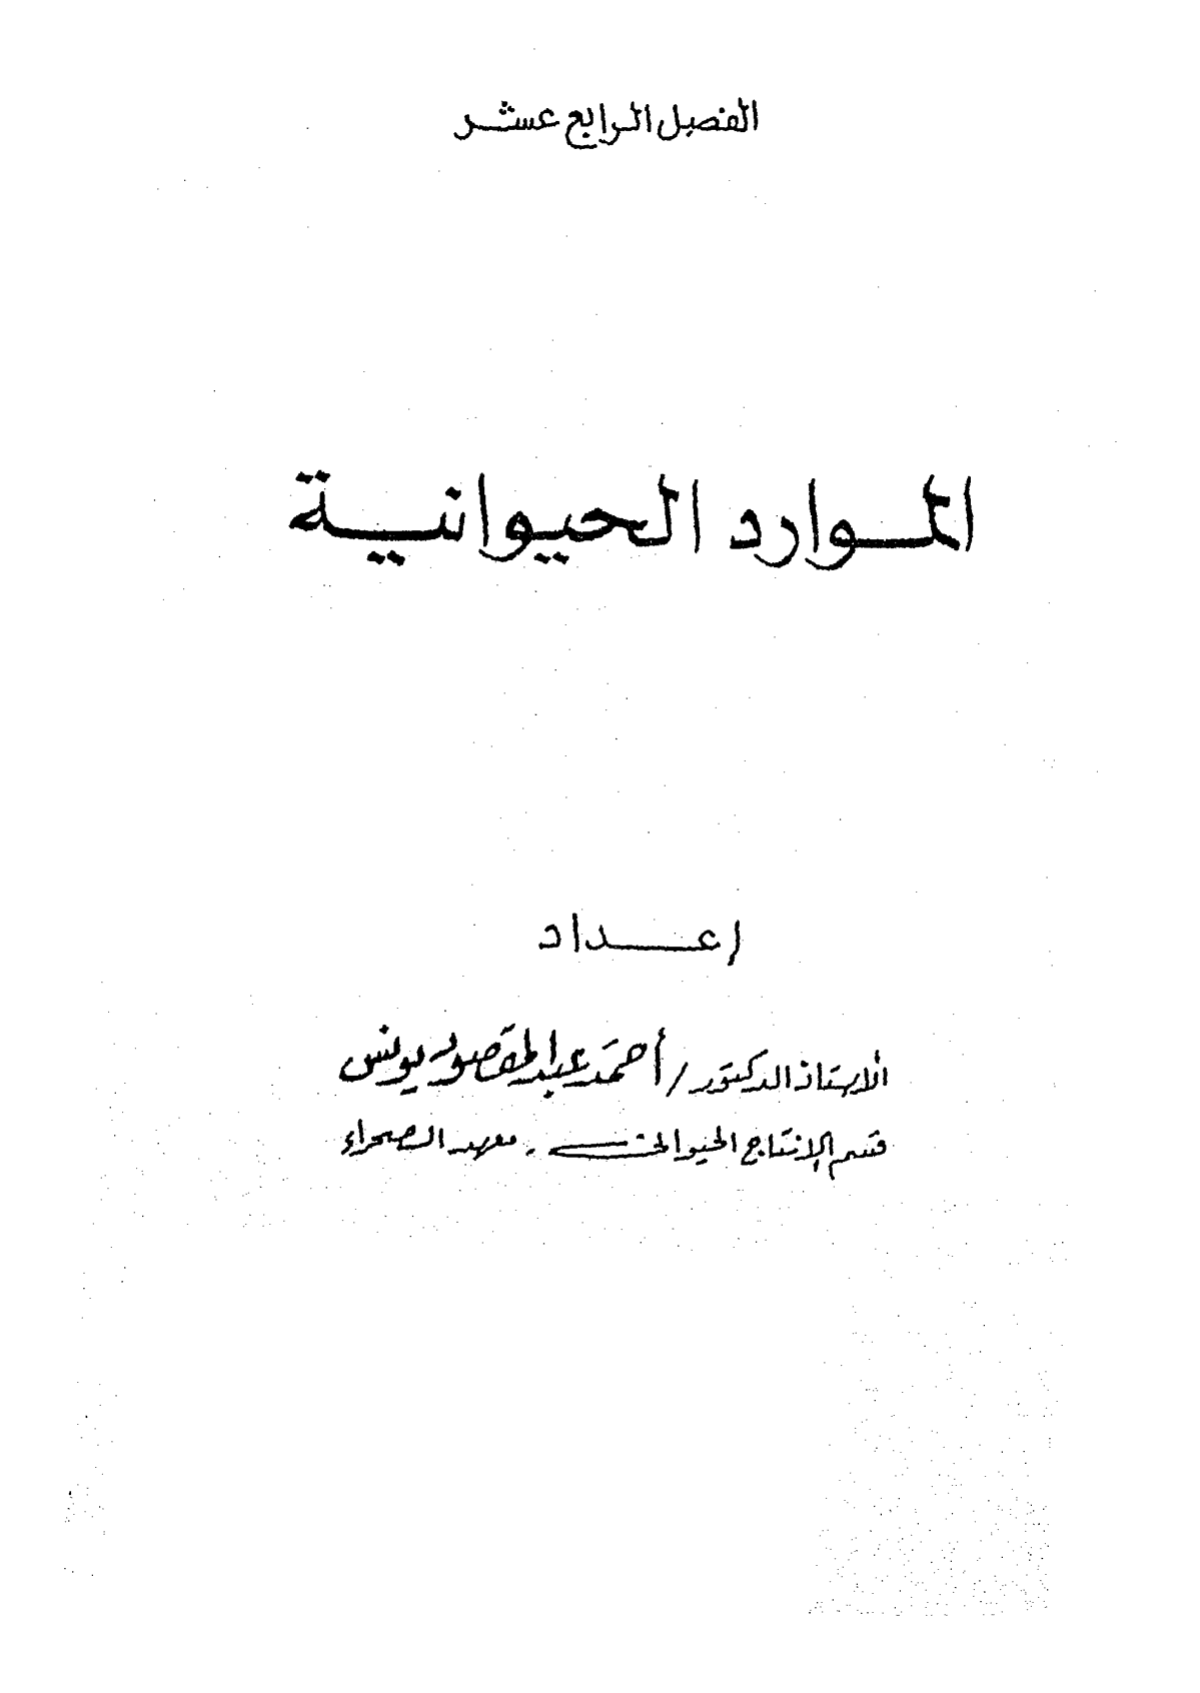 الفصل الرابع عشر
الموارد الحيوانية
إعداد
الأستاذ الدكتور / أحمد عبد المقصود يونس
قسم الإنتاج الحيواني - معهد الصحراء